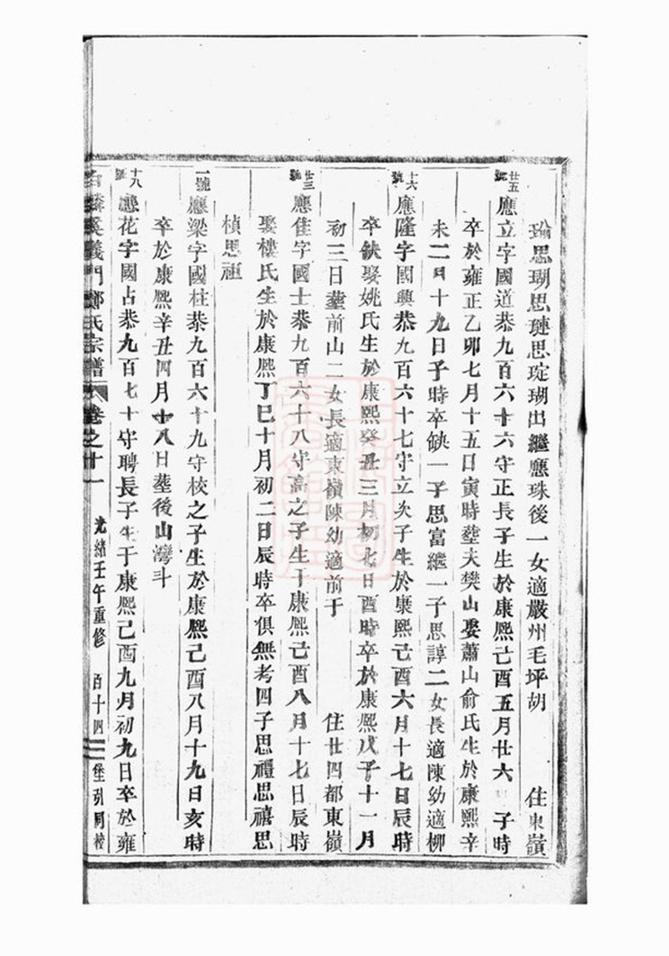 瑜思瑚思璉思琔瑚出繼應珠後一女適嚴州毛坪胡 住東嶺
廿五號應立字國道恭九百六十六守正長子生於康熙己酉五月廿六 子時
卒於雍正乙卯七月十五日寅時塟夫樊山娶蕭山俞氏生於康熙辛
未二月十九日子時卒缺一子思富繼一子思諄二女長適陳幼適柳
十六號應隆字國興恭九百六十七守立次子生於康熙己酉六月十七日辰時
卒缺娶姚氏生於康熙癸丑三月初七日酉時卒於康熙戊子十一月
初三日塟前山二女長適東嶺陳幼適前于 住廿四都東嶺
廿三號應隹字國士恭九百六十八守高之子生于康熙己酉八月十七日辰時
娶樓氏生於康熙丁巳十月初二日辰時卒俱無考四子思禮思禧思
楨思
一號應梁字國柱恭九百六十九守校之子生於康熙己酉八月十九日亥時
卒於康熙辛丑四月十八日塟後山灣斗
十八號應花字國占恭九百七十守聘長子生于康熙己酉九月初九日卒於雍
麟溪義門鄭氏宗譜 卷之十一 光緒壬午重修 百十四 堂引同校